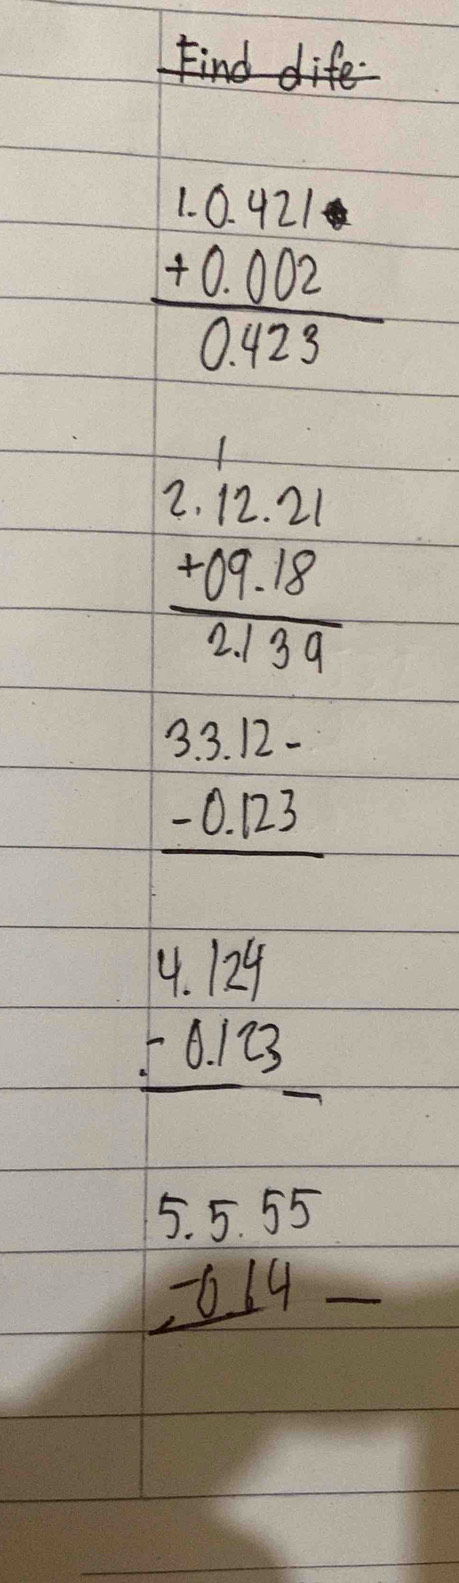 Find dife.
1. 0.421
+0.002
0.423
1
2. 12.21
+09.18
2.139
3. 3.12 -
- 0.123
4. 124
- 0.123
5. 5.55
-0.64